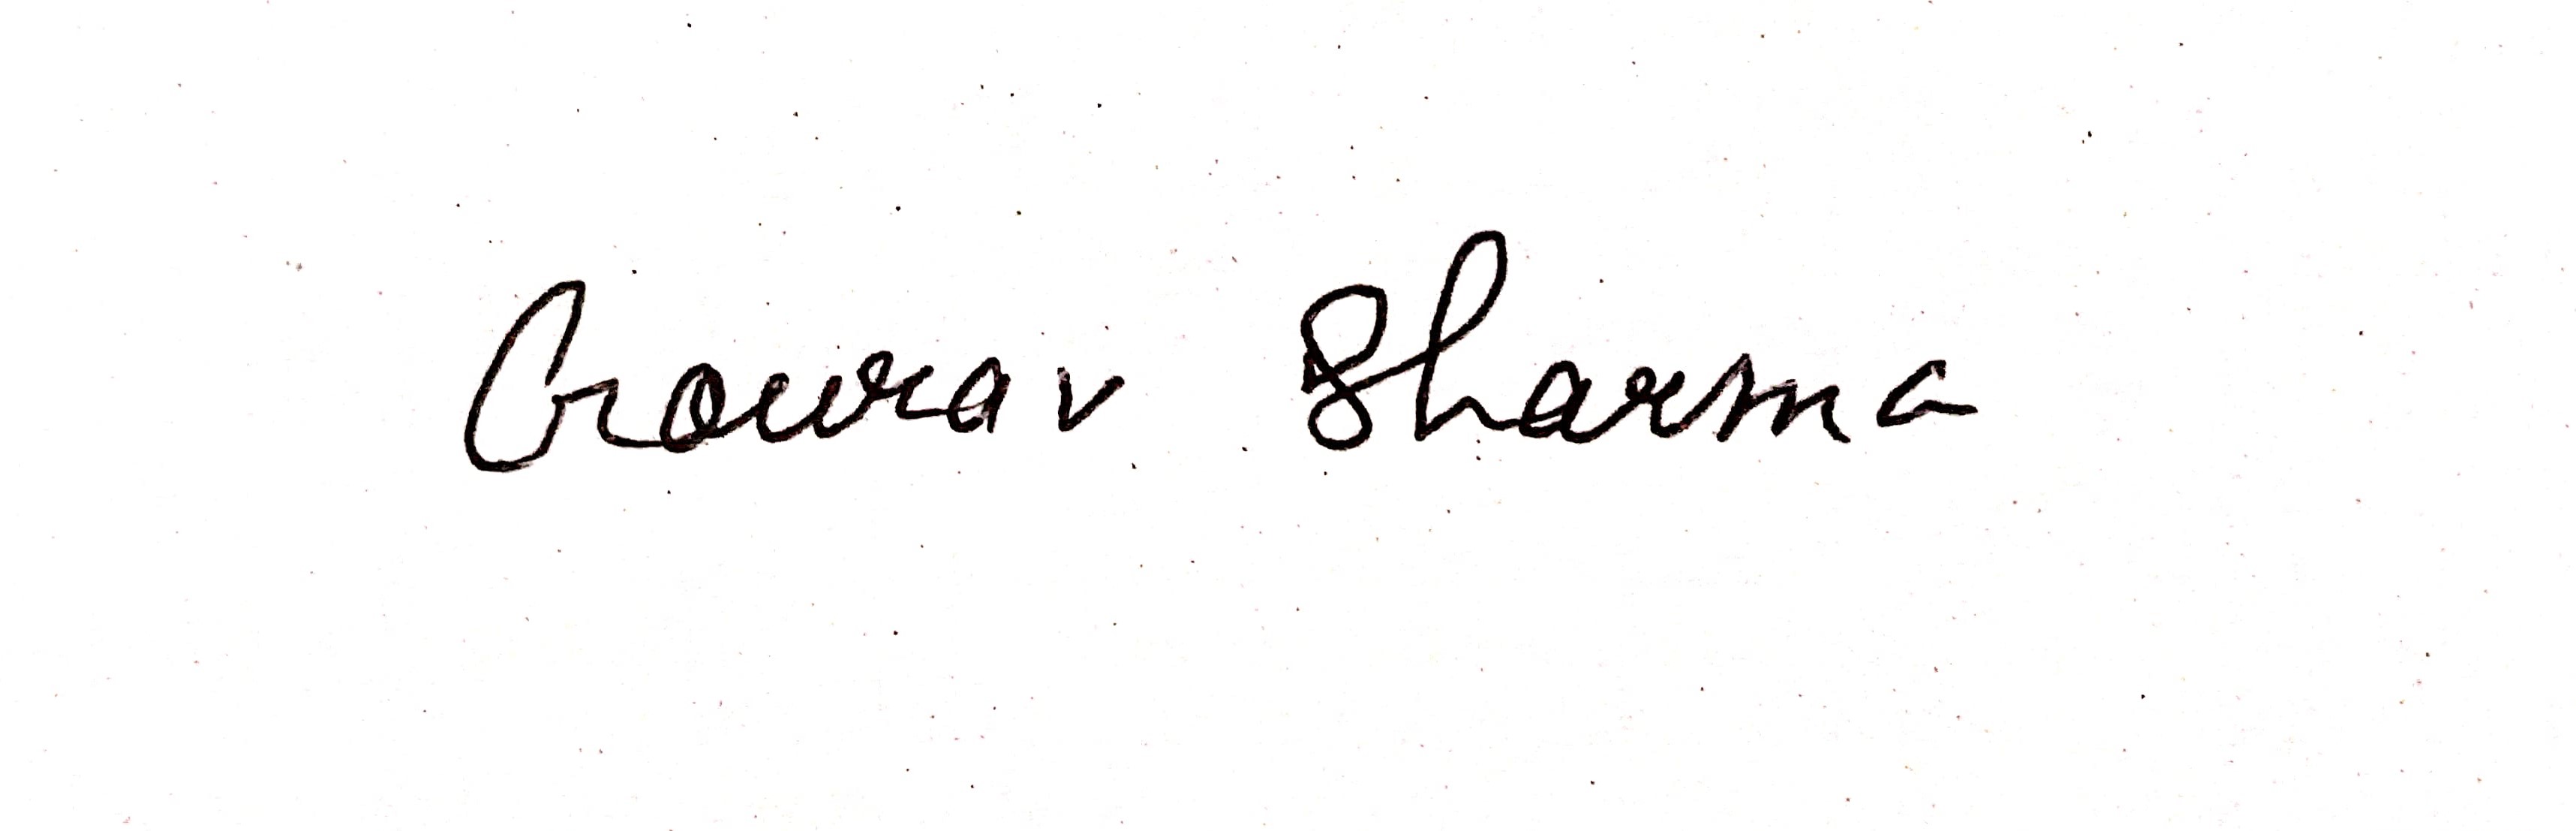 Gourav Sharma